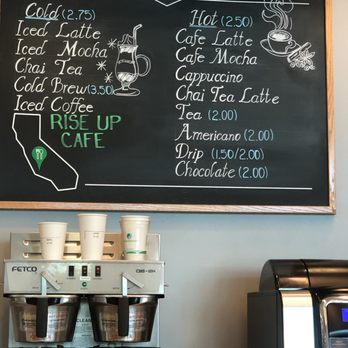 Cold (2.75)
Iced Latte
Iced Mocha
Chai Tea
Cold Brew (3.50)
Iced Coffee
RISE UP
CAFE
Hot (2.50)
Cafe Latte
Cafe Mocha
Cappuccino
Chai Tea Latte
Tea (2.00)
Americano (2.00)
Drip (1.50/2.00)
Chocolate (2.00)
FETCO